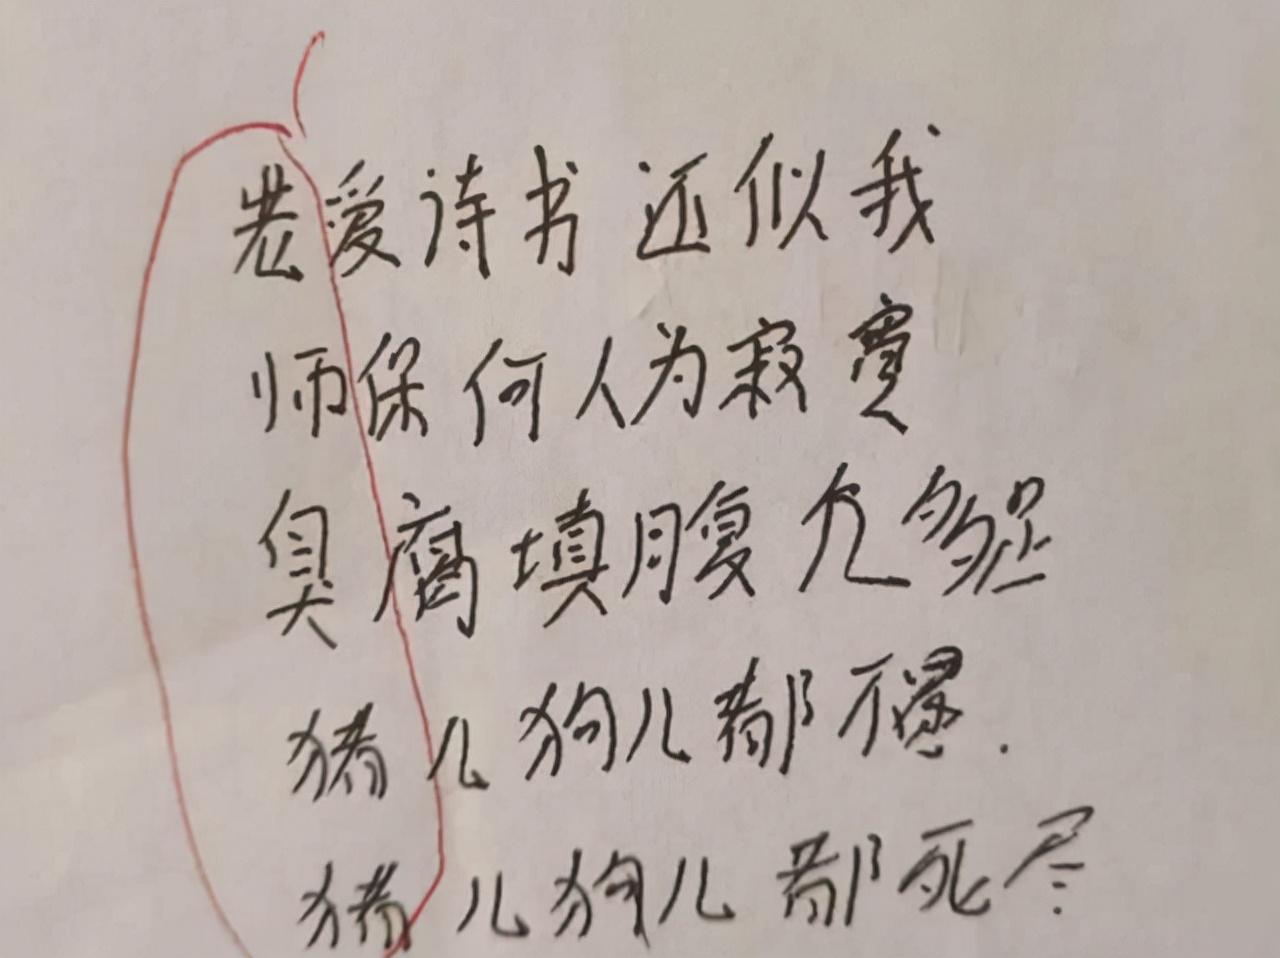 老爱诗书还似我
师保何人为寂寞
臭腐填腹九多
猪儿狗儿都不
猪儿狗儿都死尽